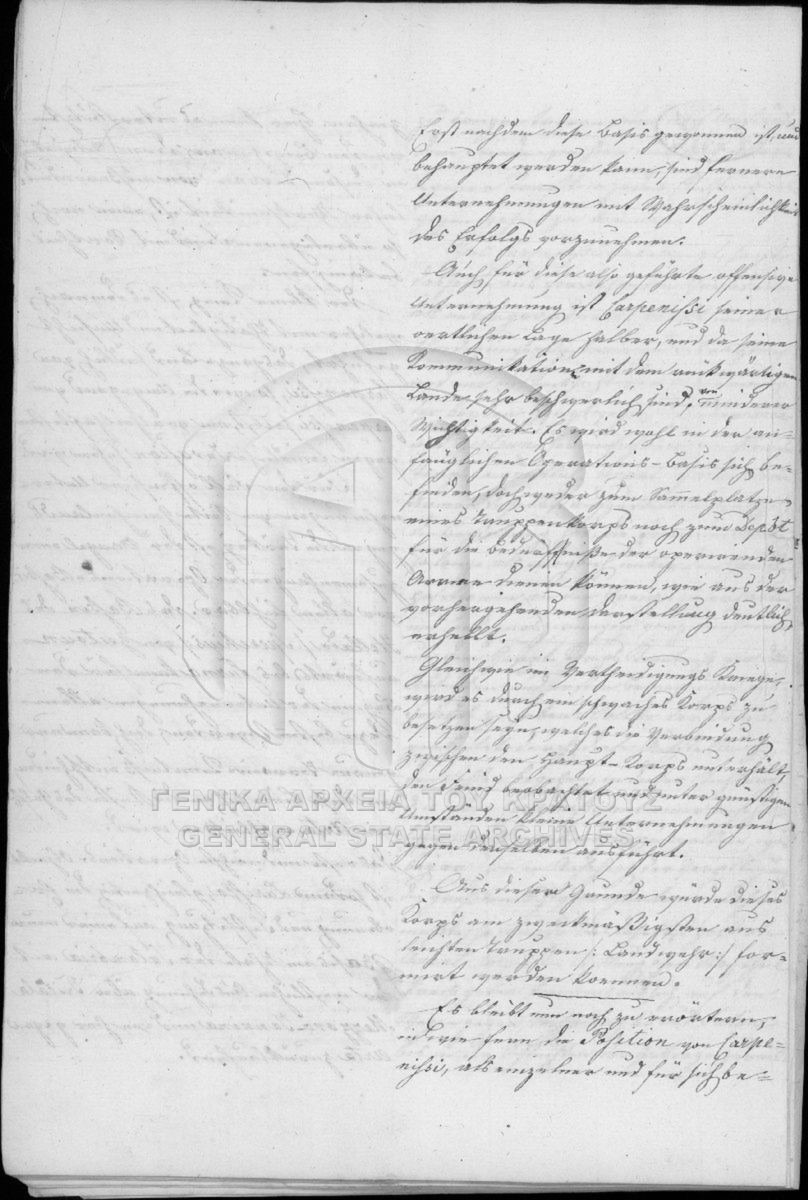 Erst nachdem diese Basis gewonnen ist, und
behauptet werden kann, sind fernere
Unternehmungen mit Wahrscheinlichkeit
des Erfolgs vorzunehmen.
Auch für diese also geführte offensive
Unternehmung ist Carpenissi seiner
oertlichen Lage halber, und da seine
Kommunikation mit dem rükwärtigen
Lande sehr beschwerlich sind, von minderer
Wichtigkeit. Es wird wohl in der an=
fänglichen Operations-Basis sich be=
finden, doch weder zum Sammelplatze
eines Truppenkorps noch zum Depôt
für die Bedürfniße der operirenden
Armee dienen können, wie aus der
vorhergehenden Darstellung deutlich
erhellt.
Gleichwie im Vertheidigungs Kriege,
wird es durch ein schwaches Korps zu
besetzen seyn, welches die Verbindung
zwischen den Haupt-Korps unterhält,
den Feind beobachtet und unter günstigen
Umständen kleine Unternehmungen
gegen denselben ausführt.
Aus diesem Grunde würde dieses
Korps am zweckmäßigsten aus
leichten Truppen /: Landwehr :/ for=
mirt werden koennen.
Es bleibt nun noch zu erörtern,
in wie fern die Position von Carpe=
nissi, als einzelner und für sich be=
ΓΕΝΙΚΑ ΑΡΧΕΙΑ ΤΟΥ ΚΡΑΤΟΥΣ
GENERAL STATE ARCHIVES